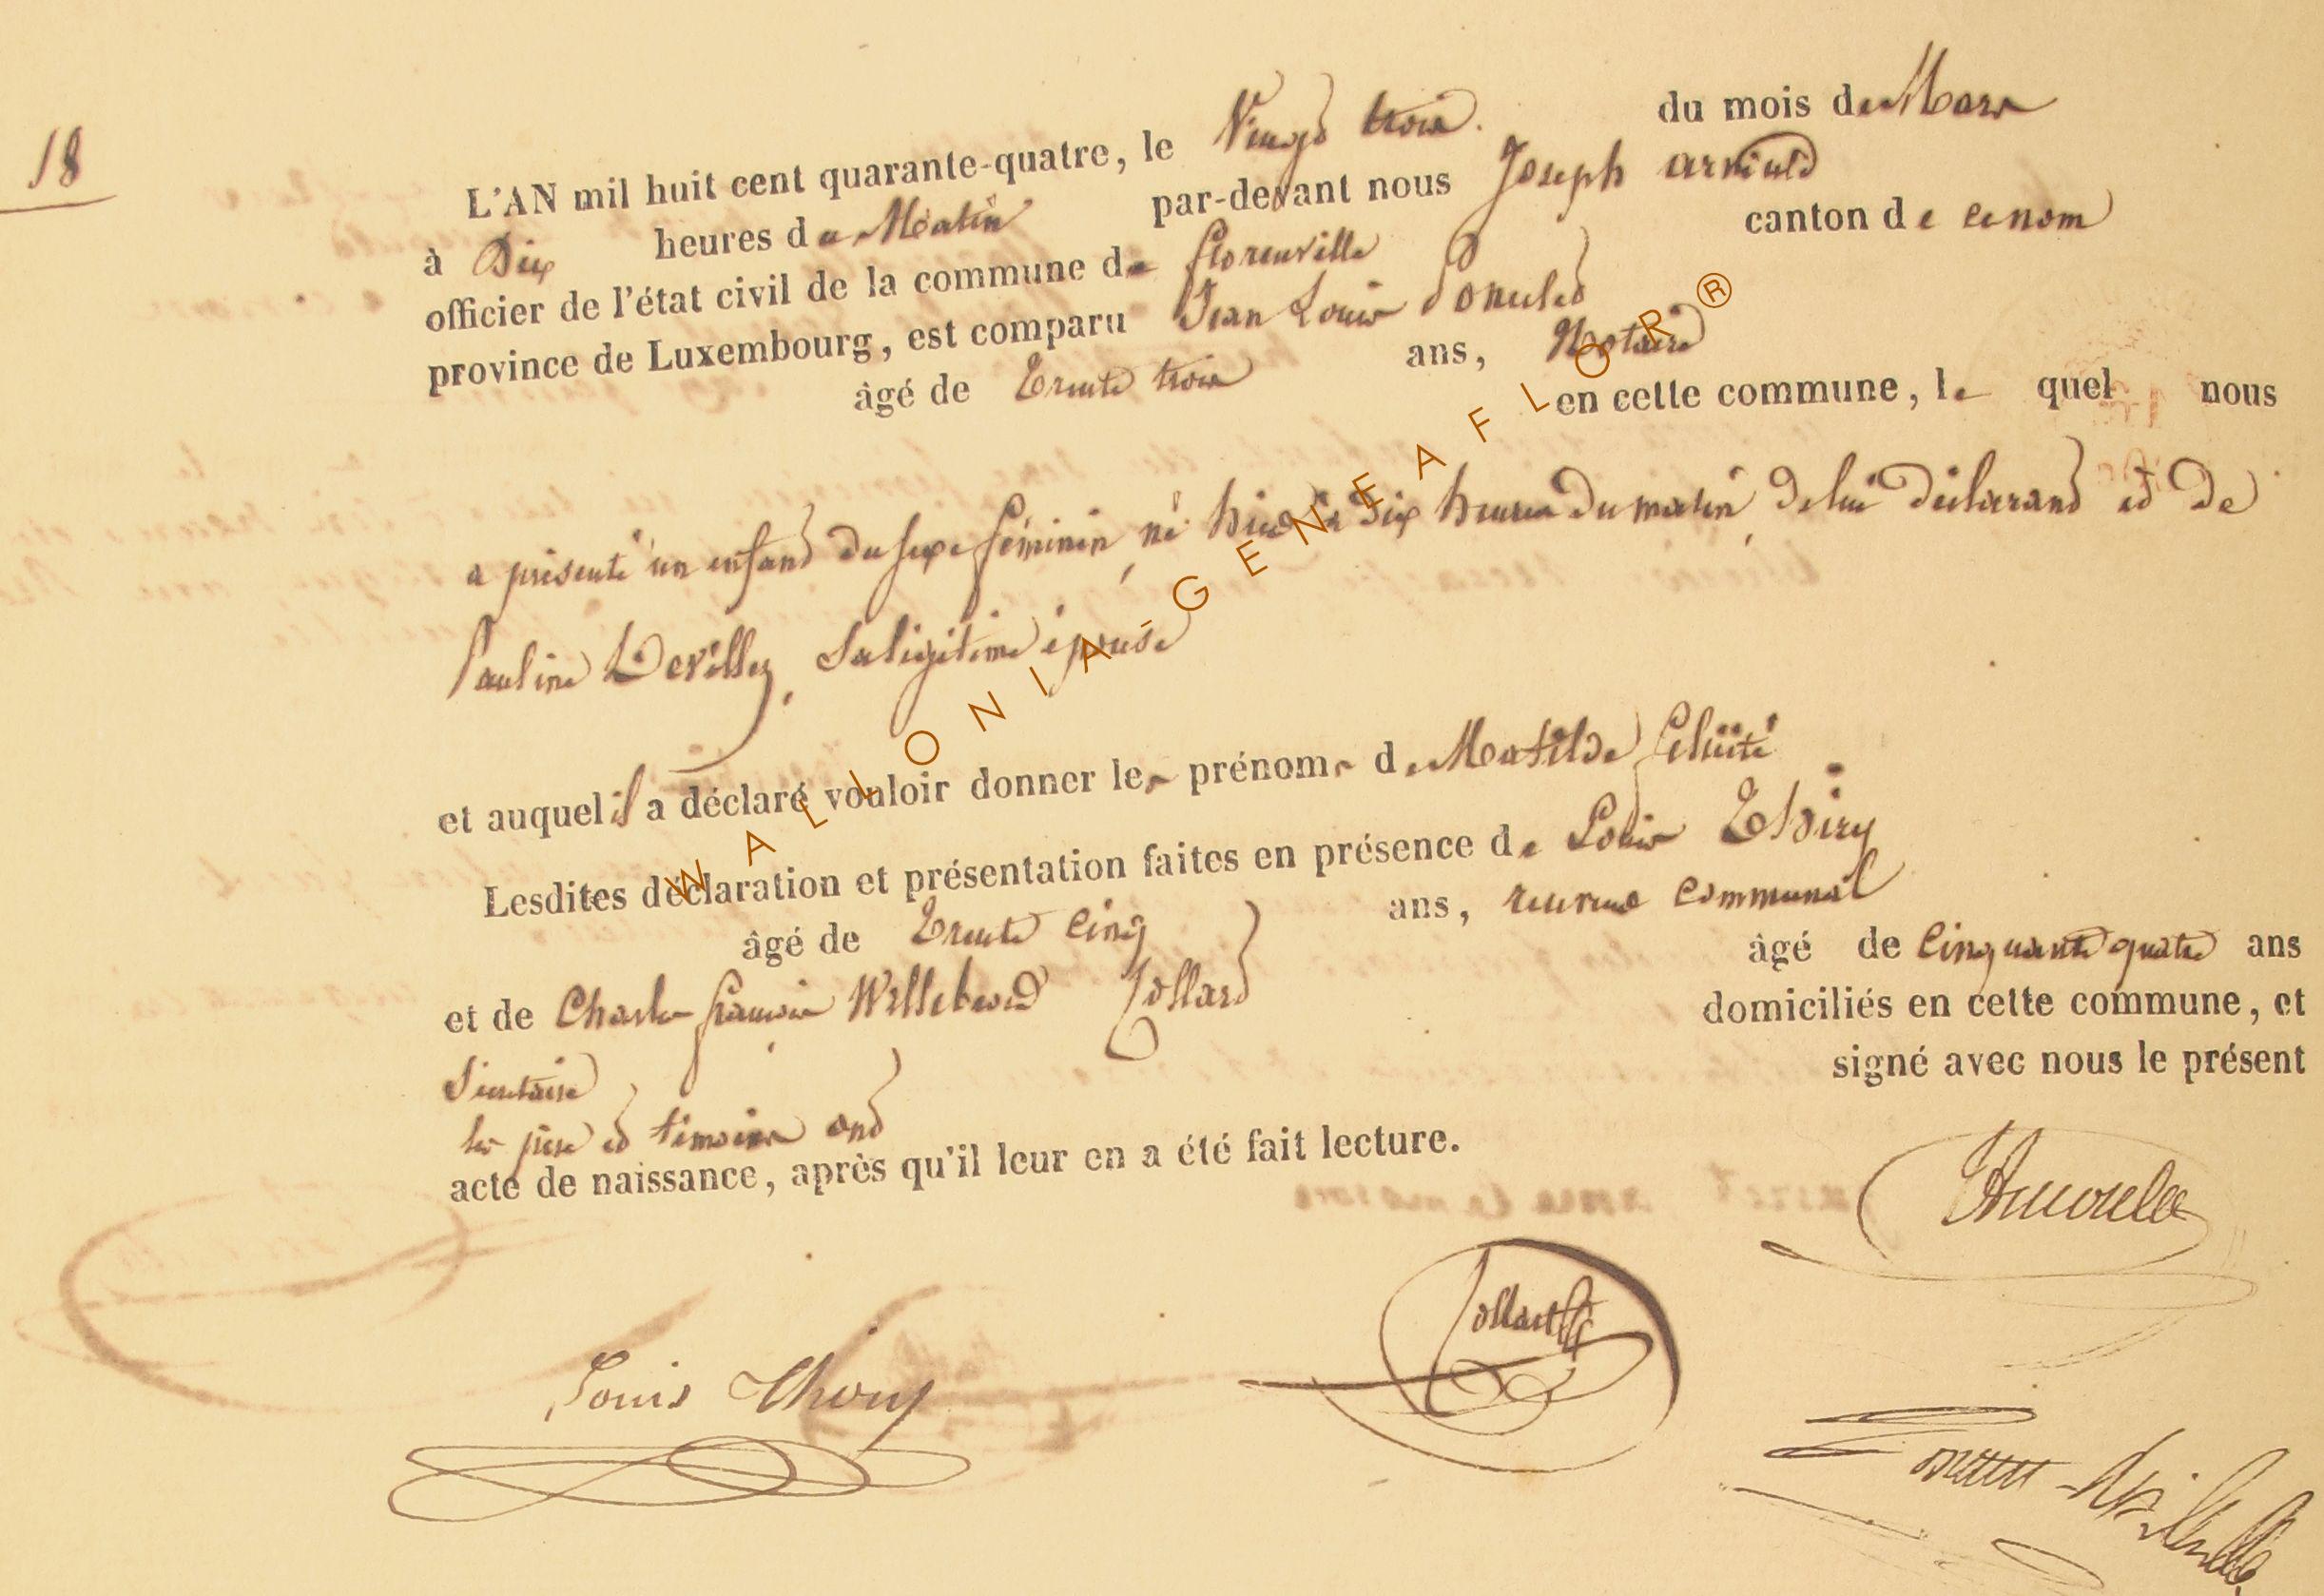 18
L'AN mil huit cent quarante-quatre, le Vingt trois du mois de Mars
à Dix heures du Matin par-devant nous Joseph
officier de l'état civil de la commune de florenville canton de ce nom
province de Luxembourg, est comparu Jean Louis
âgé de Trente trois ans, Notaire
en cette commune, le quel nous
a présenté un enfant du sexe féminin, né hier à dix heures du matin, de lui déclarant et de
Pauline Devillez, sa légitime épouse
et auquel il a déclaré vouloir donner les prénoms de Matilde félicité
Lesdites déclaration et présentation faites en présence de Louis Thiry
âgé de Trente cinq ans, receveur communal
et de Charles françois Willebrord Jollard âgé de Cinquante quatre ans
Secrétaire domiciliés en cette commune, et
les père et témoins ont signé avec nous le présent
acte de naissance, après qu'il leur en a été fait lecture.
Louis Thiry
WALLONIA-GENEAFLOR®